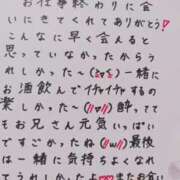 お仕事終わりに会
いにきてくれてありがとう♡
こんなに早く会えると
思っていなかったからう
れしかった〜(≧▽≦)一緒に
お酒飲んでイチャイチャするの
楽しかった〜(//∇//)酔ってて
もお兄さん元気いっぱい
ですごかったね(//ω//)最後
は一緒に気持ちよくなれ
てうれしかったよ♡またお会い